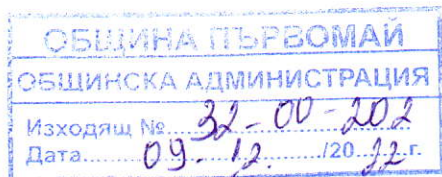 ОБЩИНА ПЪРВОМАЙ
ОБЩИНСКА АДМИНИСТРАЦИЯ
Изходящ № 32-00-202
Дата......09.12....../2022г.